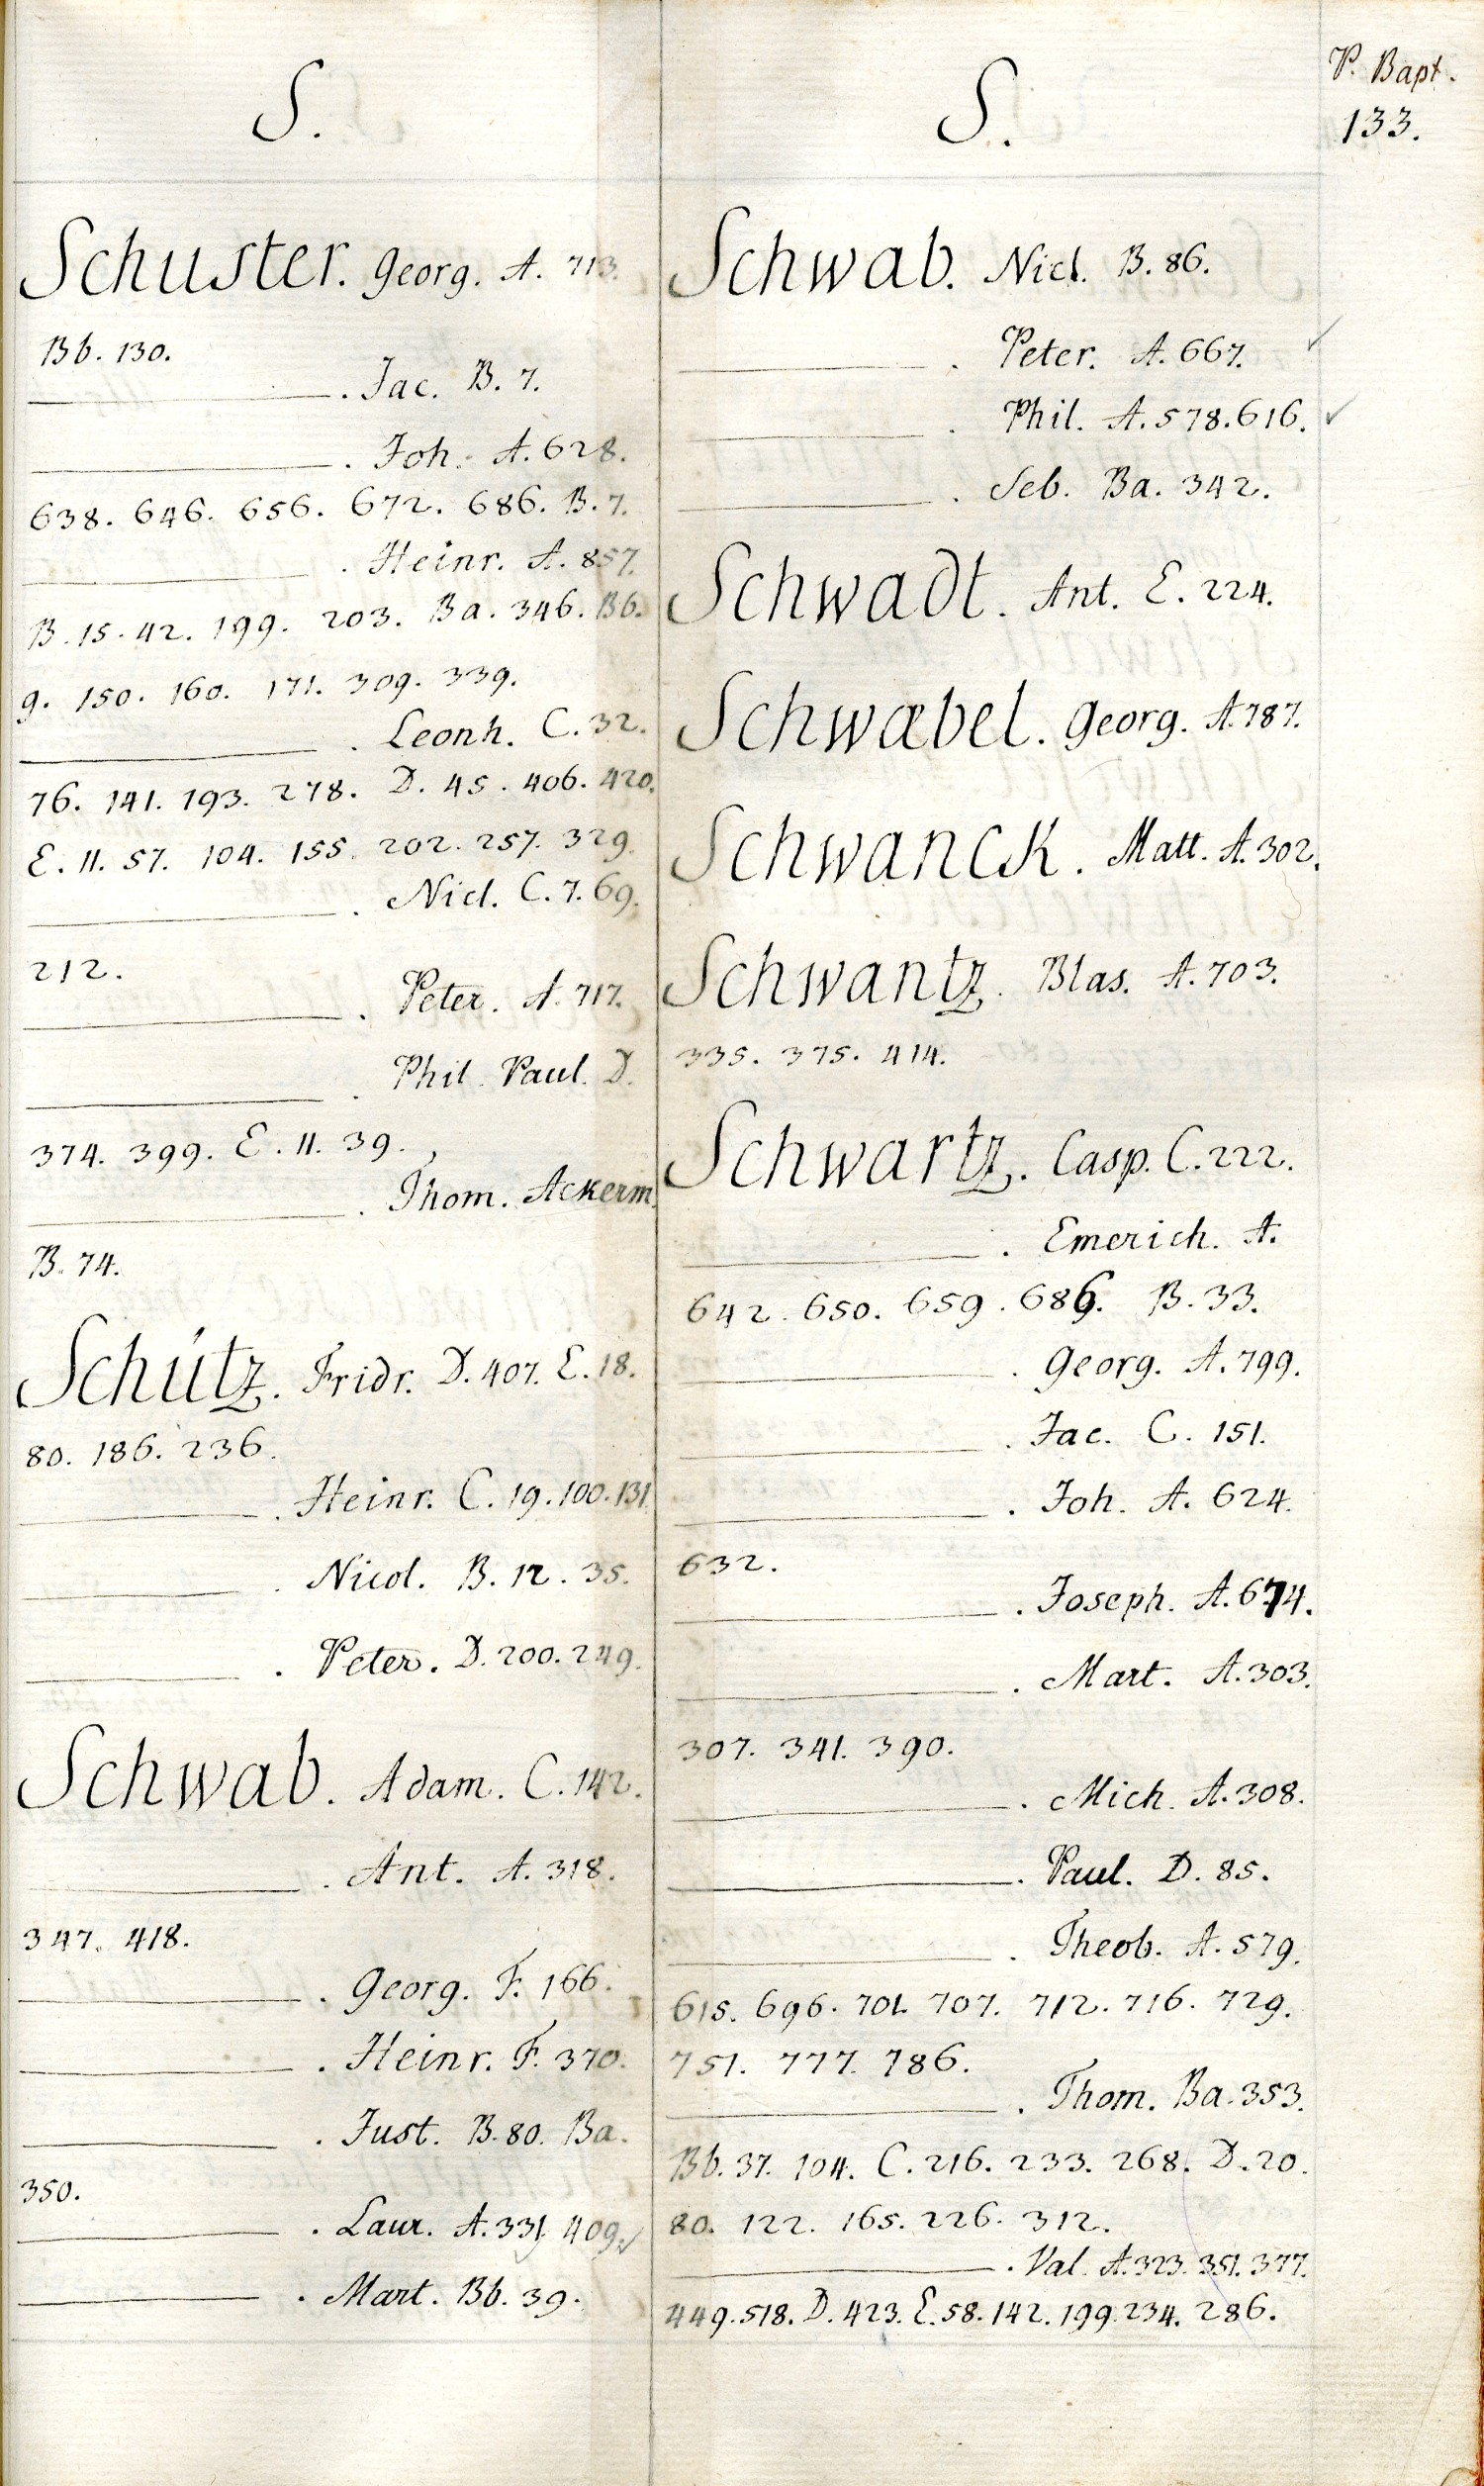 S.
Schuster. Georg. A. 713.
Bb. 130.
. Jac. B. 7.
. Joh. A. 628.
638. 646. 656. 672. 686. B. 7.
. Heinr. A. 857.
B. 15. 42. 199. 203. Ba. 346. Bb.
9. 150. 160. 171. 309. 339.
. Leonh. C. 32.
76. 141. 193. 278. D. 45. 406. 420.
E. 11. 57. 104. 155. 202. 257. 329.
. Nicl. C. 7. 69.
212.
. Peter. A. 717.
. Phil. Paul. D.
374. 399. E. 11. 39.
. Thom. Ackerm.
B. 74.
Schütz. Fridr. D. 407. E. 18.
80. 186. 236.
. Heinr. C. 19. 100. 131.
. Nicol. B. 12. 35.
. Peter. D. 200. 249.
Schwab. Adam. C. 142.
. Ant. A. 318.
347. 418.
. Georg. F. 166.
. Heinr. F. 370.
. Just. B. 80. Ba.
350.
. Laur. A. 331. 409.
. Mart. Bb. 39.
S.
Schwab. Nicl. B. 86.
. Peter. A. 667.
. Phil. A. 578. 616.
. Seb. Ba. 342.
Schwadt. Ant. E. 224.
Schwæbel. Georg. A. 787.
Schwanck. Matt. A. 302.
Schwantz. Blas. A. 703.
335. 375. 414.
Schwartz. Casp. C. 222.
. Emerich. A.
642. 650. 659. 686. B. 33.
. Georg. A. 799.
. Jac. C. 151.
. Joh. A. 624.
632.
. Joseph. A. 674.
. Mart. A. 303.
307. 341. 390.
. Mich. A. 308.
. Paul. D. 85.
. Theob. A. 579.
615. 696. 701. 707. 712. 716. 729.
751. 777. 786.
. Thom. Ba. 353.
Bb. 37. 104. C. 216. 233. 268. D. 20.
80. 122. 165. 226. 312.
. Val. A. 323. 351. 377.
449. 518. D. 423. E. 58. 142. 199. 234. 286.
P. Bapt.
133.